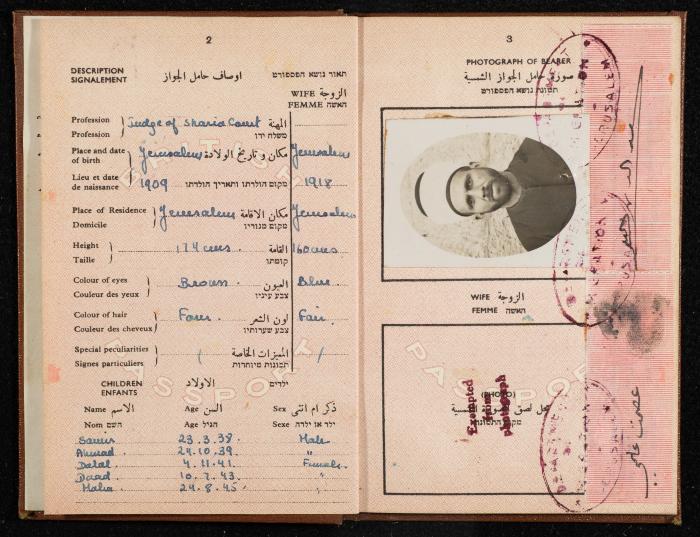 2
DESCRIPTION
SIGNALEMENT
اوصاف حامل الجواز
תאור נושא הפספורט
WIFE الزوجة
FEMME האשה
Profession
Profession
Judge of Sharia Court
المهنة
משלח ידו
Place and date
of birth
Jerusalem
مكان و تاريخ الولادة
Jerusalem
Lieu et date
de naissance
1909
מקום הולדתו ותאריך הולדתו
1918
Place of Residence
Domicile
Jerusalem
مكان الاقامة
מקום מגוריו
Jerusalem
Height
Taille
174 cms.
القامة
קומתו
160 cms
Colour of eyes
Couleur des yeux
Brown
العيون
צבע עיניו
Blue
Colour of hair
Couleur des cheveux
لون الشعر
צבע שערותיו
Fair
Special peculiarities
Signes particuliers
المميزات الخاصة
תכונות מיוחדות
CHILDREN
ENFANTS
الاولاد
ילדים
Name الاسم Age السن Sex ذكر ام انثى
Nom השם Age הגיל Sexe ילד או ילדה
Samir 23.3.38. Male
Ahmad 24.10.39. "
Dalal 4.11.41. Female.
Daad 10.7.43. "
Maha 24.8.45 "
PASSPORT
3
PHOTOGRAPH OF BEARER
صورة حامل الجواز الشمسية
תמונת נושא הפספורט
WIFE الزوجة
FEMME האשה
(PHOTO)
Exempted
from
photograph
محل لصق الصورة الشمسية
מקום התמונה
PASSPORT
JERUSALEM